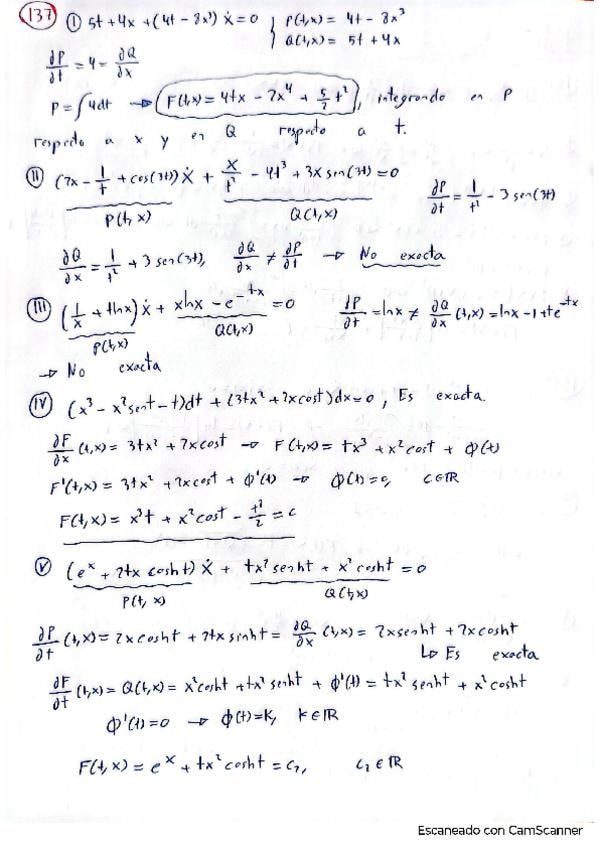 137 I 5t + 4x + (4t - 8x³) ẋ = 0 } P(t,x) = 4t - 8x³
Q(t,x) = 5t + 4x
∂P/∂t = 4 = ∂Q/∂x
P = ∫4dt → F(t,x) = 4tx - 2x⁴ + 5/2 t², integrando en P
respecto a x y en Q respecto a t.
II (2x - 1/t + cos(3t)) ẋ + x/t² - 4t³ + 3x sen(3t) = 0
P(t,x) Q(t,x) ∂P/∂t = 1/t² - 3 sen(3t)
∂Q/∂x = 1/t² + 3 sen(3t), ∂Q/∂x ≠ ∂P/∂t → No exacta
III (1/x + t ln x) ẋ + x ln x - e^-tx = 0 ∂P/∂t = ln x ≠ ∂Q/∂x (t,x) = ln x - 1 + te^-tx
P(t,x) Q(t,x)
→ No exacta
IV (x³ - x² sent - t)dt + (3tx² + 2x cost)dx = 0, Es exacta.
∂F/∂x (t,x) = 3tx² + 2x cost → F(t,x) = tx³ + x² cost + Φ(t)
F'(t,x) = 3tx² + 2x cost + Φ'(t) → Φ(t) = c, c ∈ ℝ
F(t,x) = x³t + x² cost - t²/2 = c
V (eˣ + 2tx cosht) ẋ + tx² senht + x² cosht = 0
P(t,x) Q(t,x)
∂P/∂t (t,x) = 2x cosht + 2tx sinht = ∂Q/∂x (t,x) = 2x senht + 2x cosht
↳ Es exacta
∂F/∂t (t,x) = Q(t,x) = x² cosht + tx² senht + Φ'(t) = tx² senht + x² cosht
Φ'(t) = 0 → Φ(t) = K, K ∈ ℝ
F(t,x) = eˣ + tx² cosht = c₂, c₂ ∈ ℝ
Escaneado con CamScanner